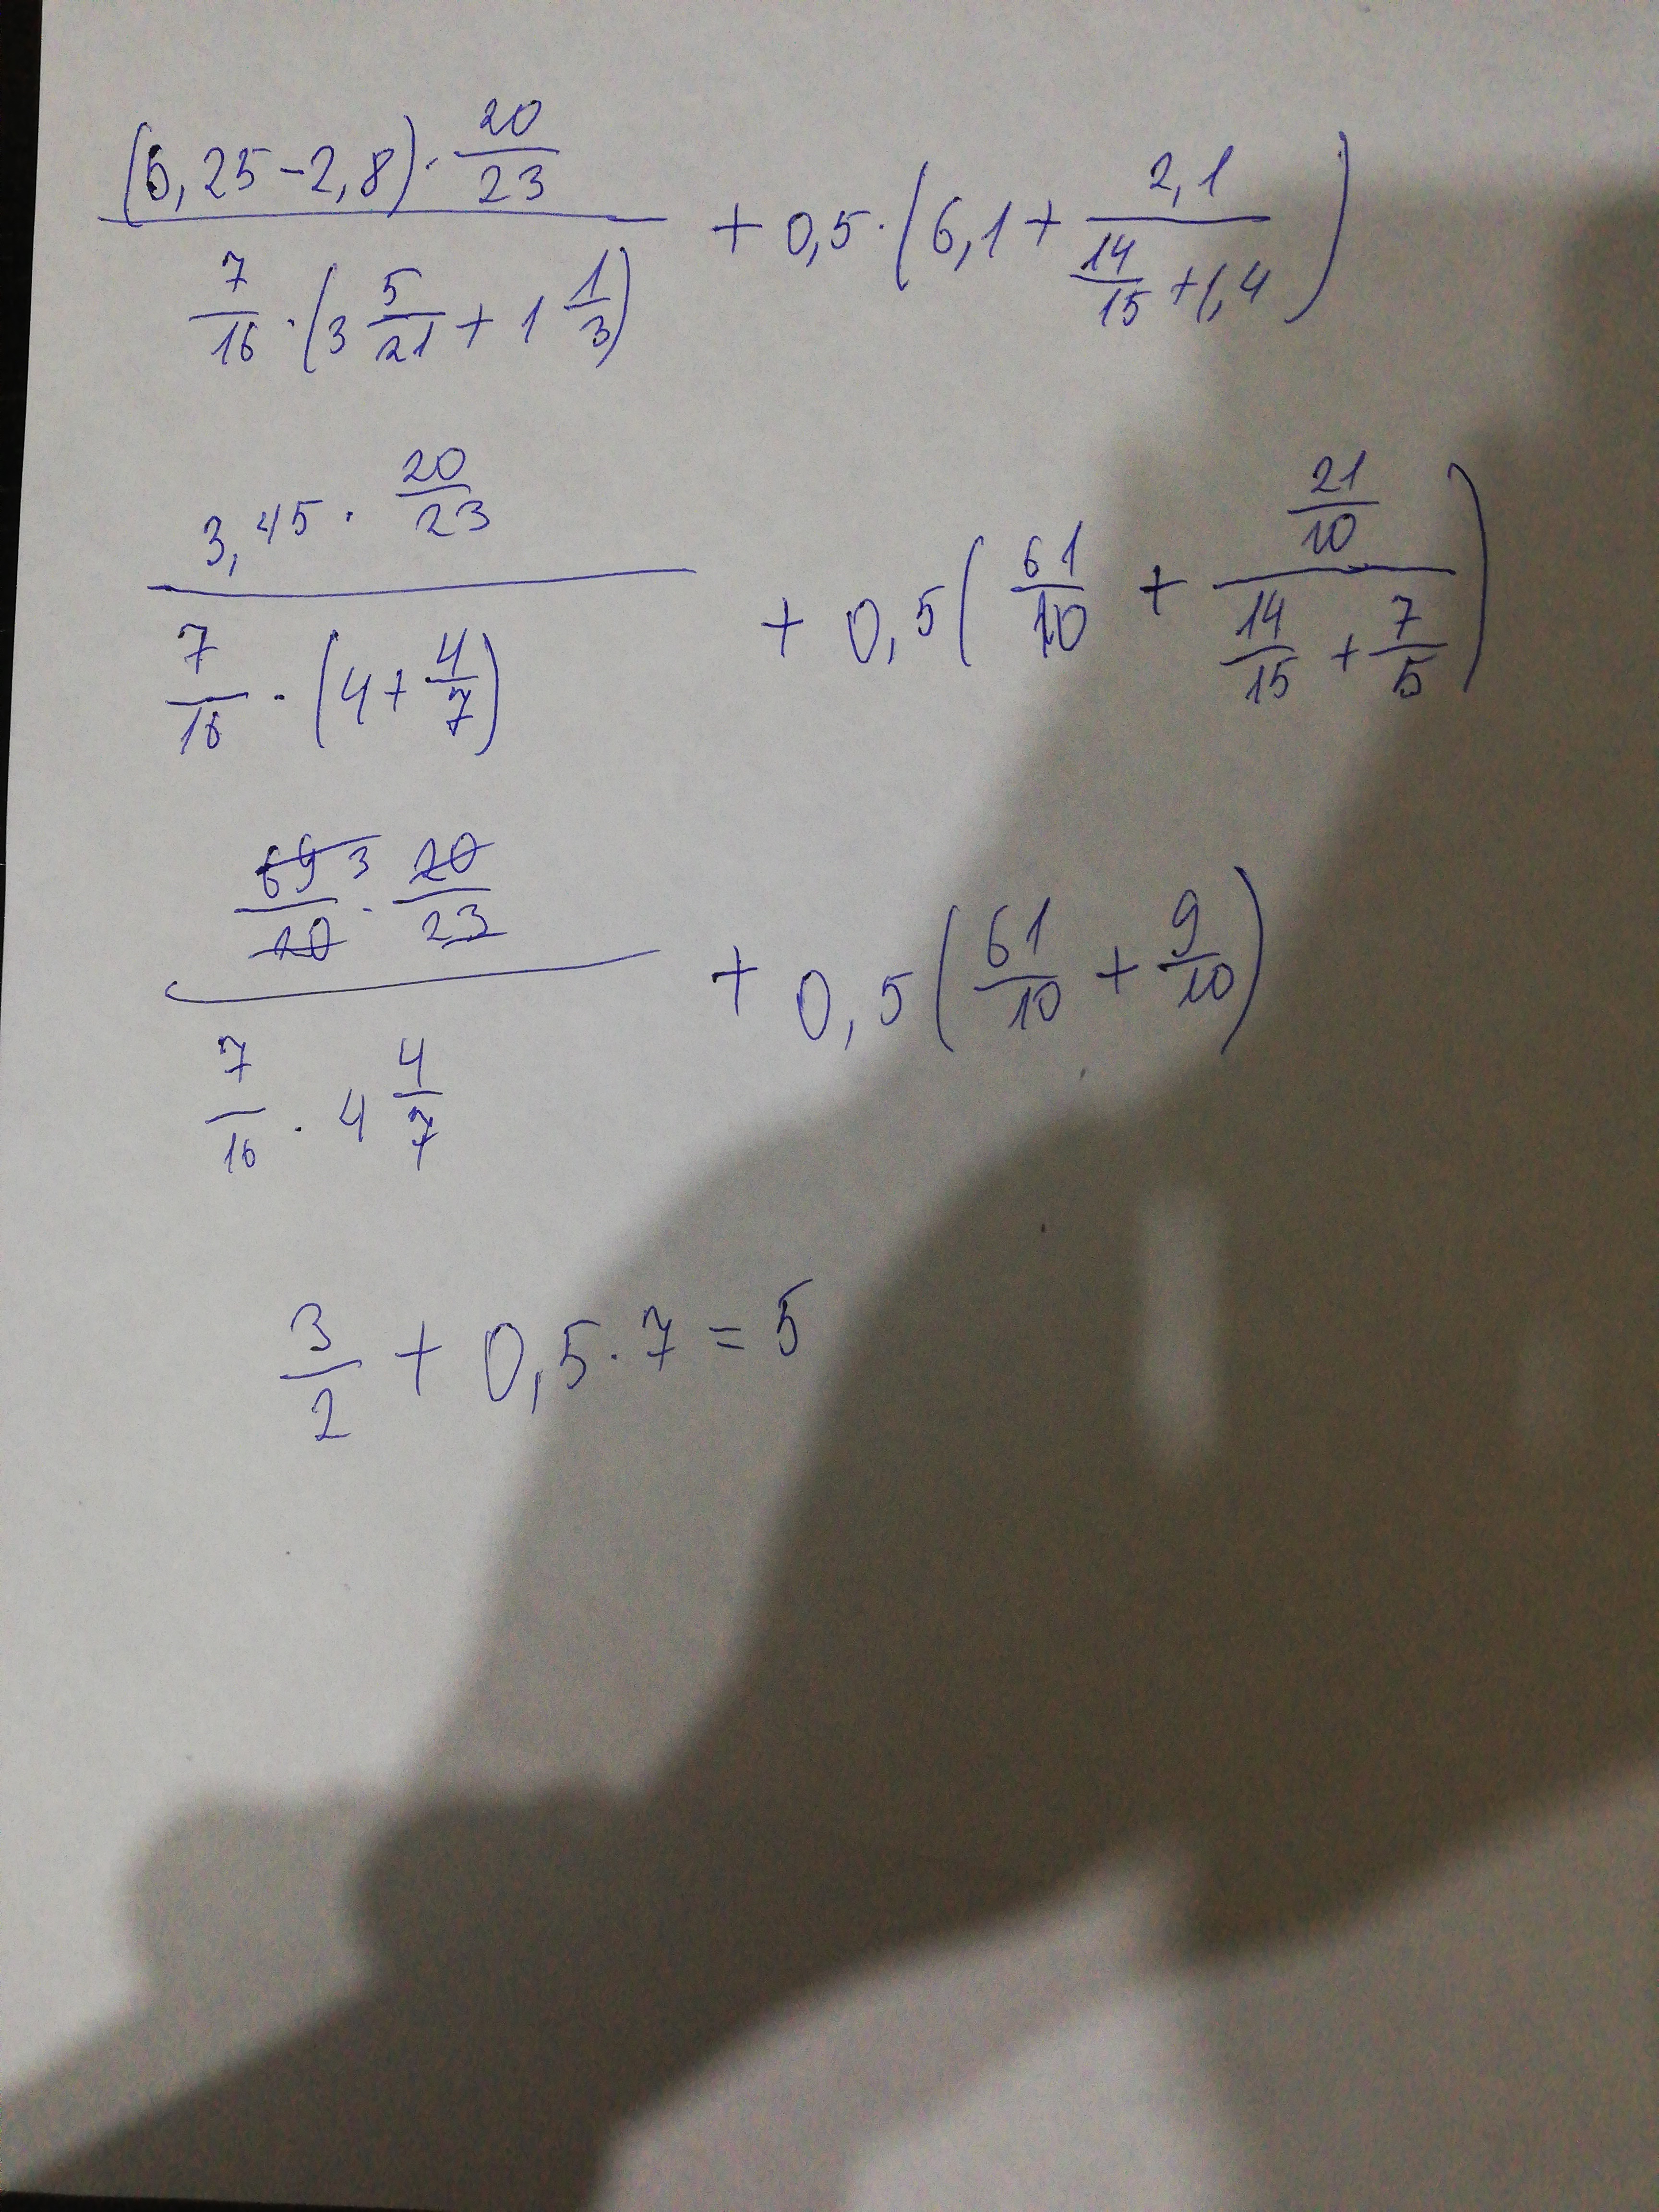 ((6,25-2,8)·20/23)/(7/16·(3 5/21+1 1/3)) + 0,5·(6,1+2,1/(14/15+1,4))
(3,45·20/23)/(7/16·(4+4/7)) + 0,5(61/10+(21/10)/(14/15+7/5))
(69 3/20·20/23)/(7/16·4 4/7) + 0,5(61/10+9/10)
3/2+0,5·7=5